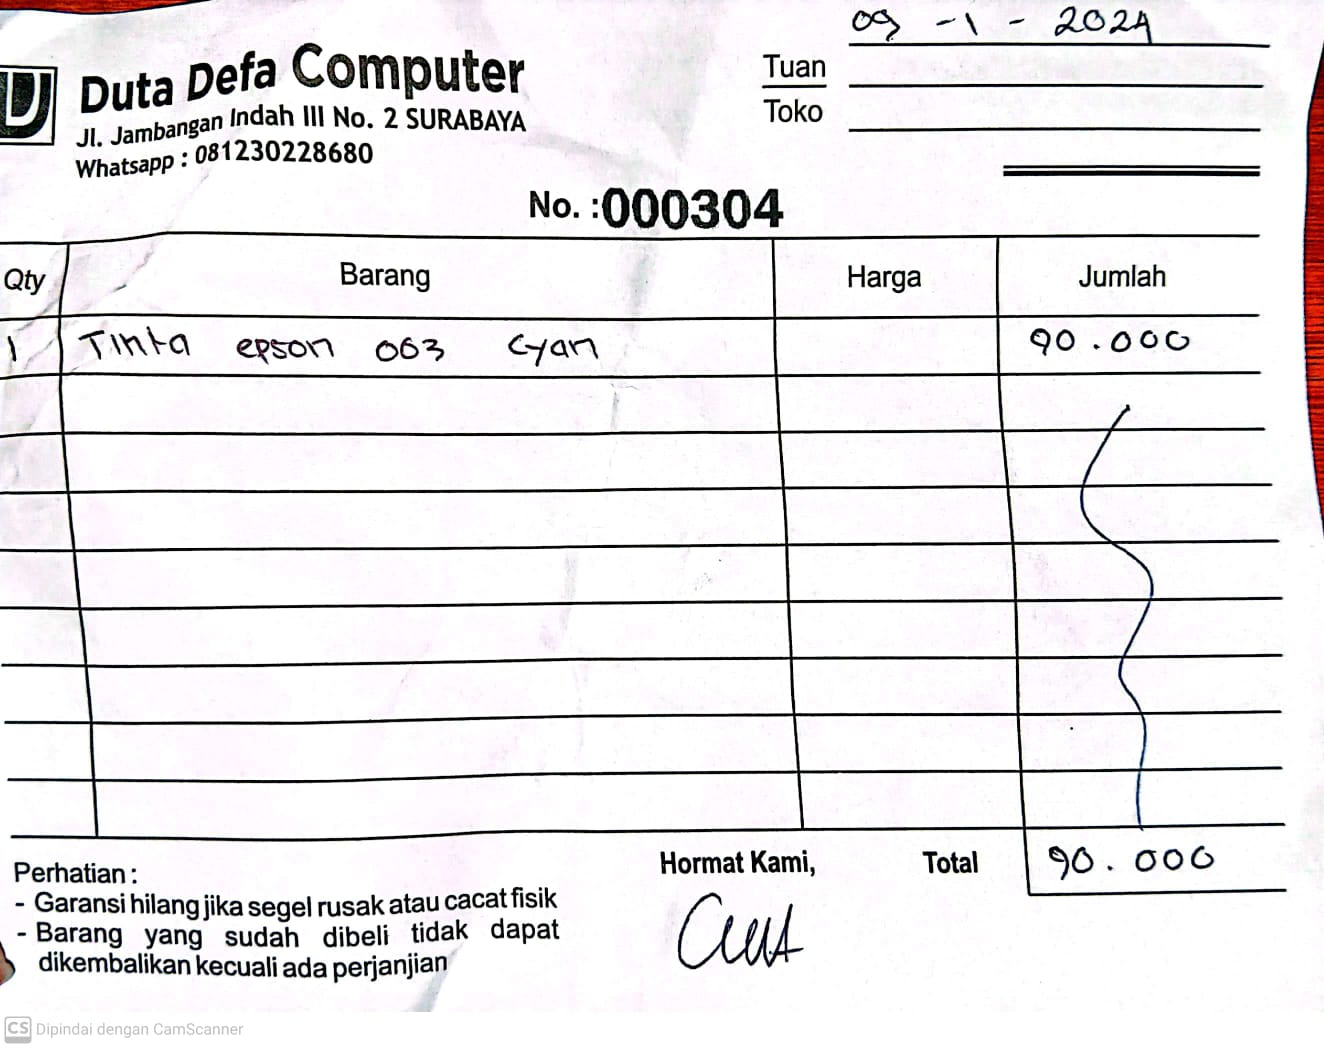 09 - 1 - 2024
Duta Defa Computer
Jl. Jambangan Indah III No. 2 SURABAYA
Whatsapp : 081230228680
Tuan
Toko
No. :000304
Qty Barang Harga Jumlah
1 Tinta epson 003 Cyan 90.000
Hormat Kami, Total 90.000
Perhatian :
- Garansi hilang jika segel rusak atau cacat fisik
- Barang yang sudah dibeli tidak dapat
dikembalikan kecuali ada perjanjian
CS Dipindai dengan CamScanner